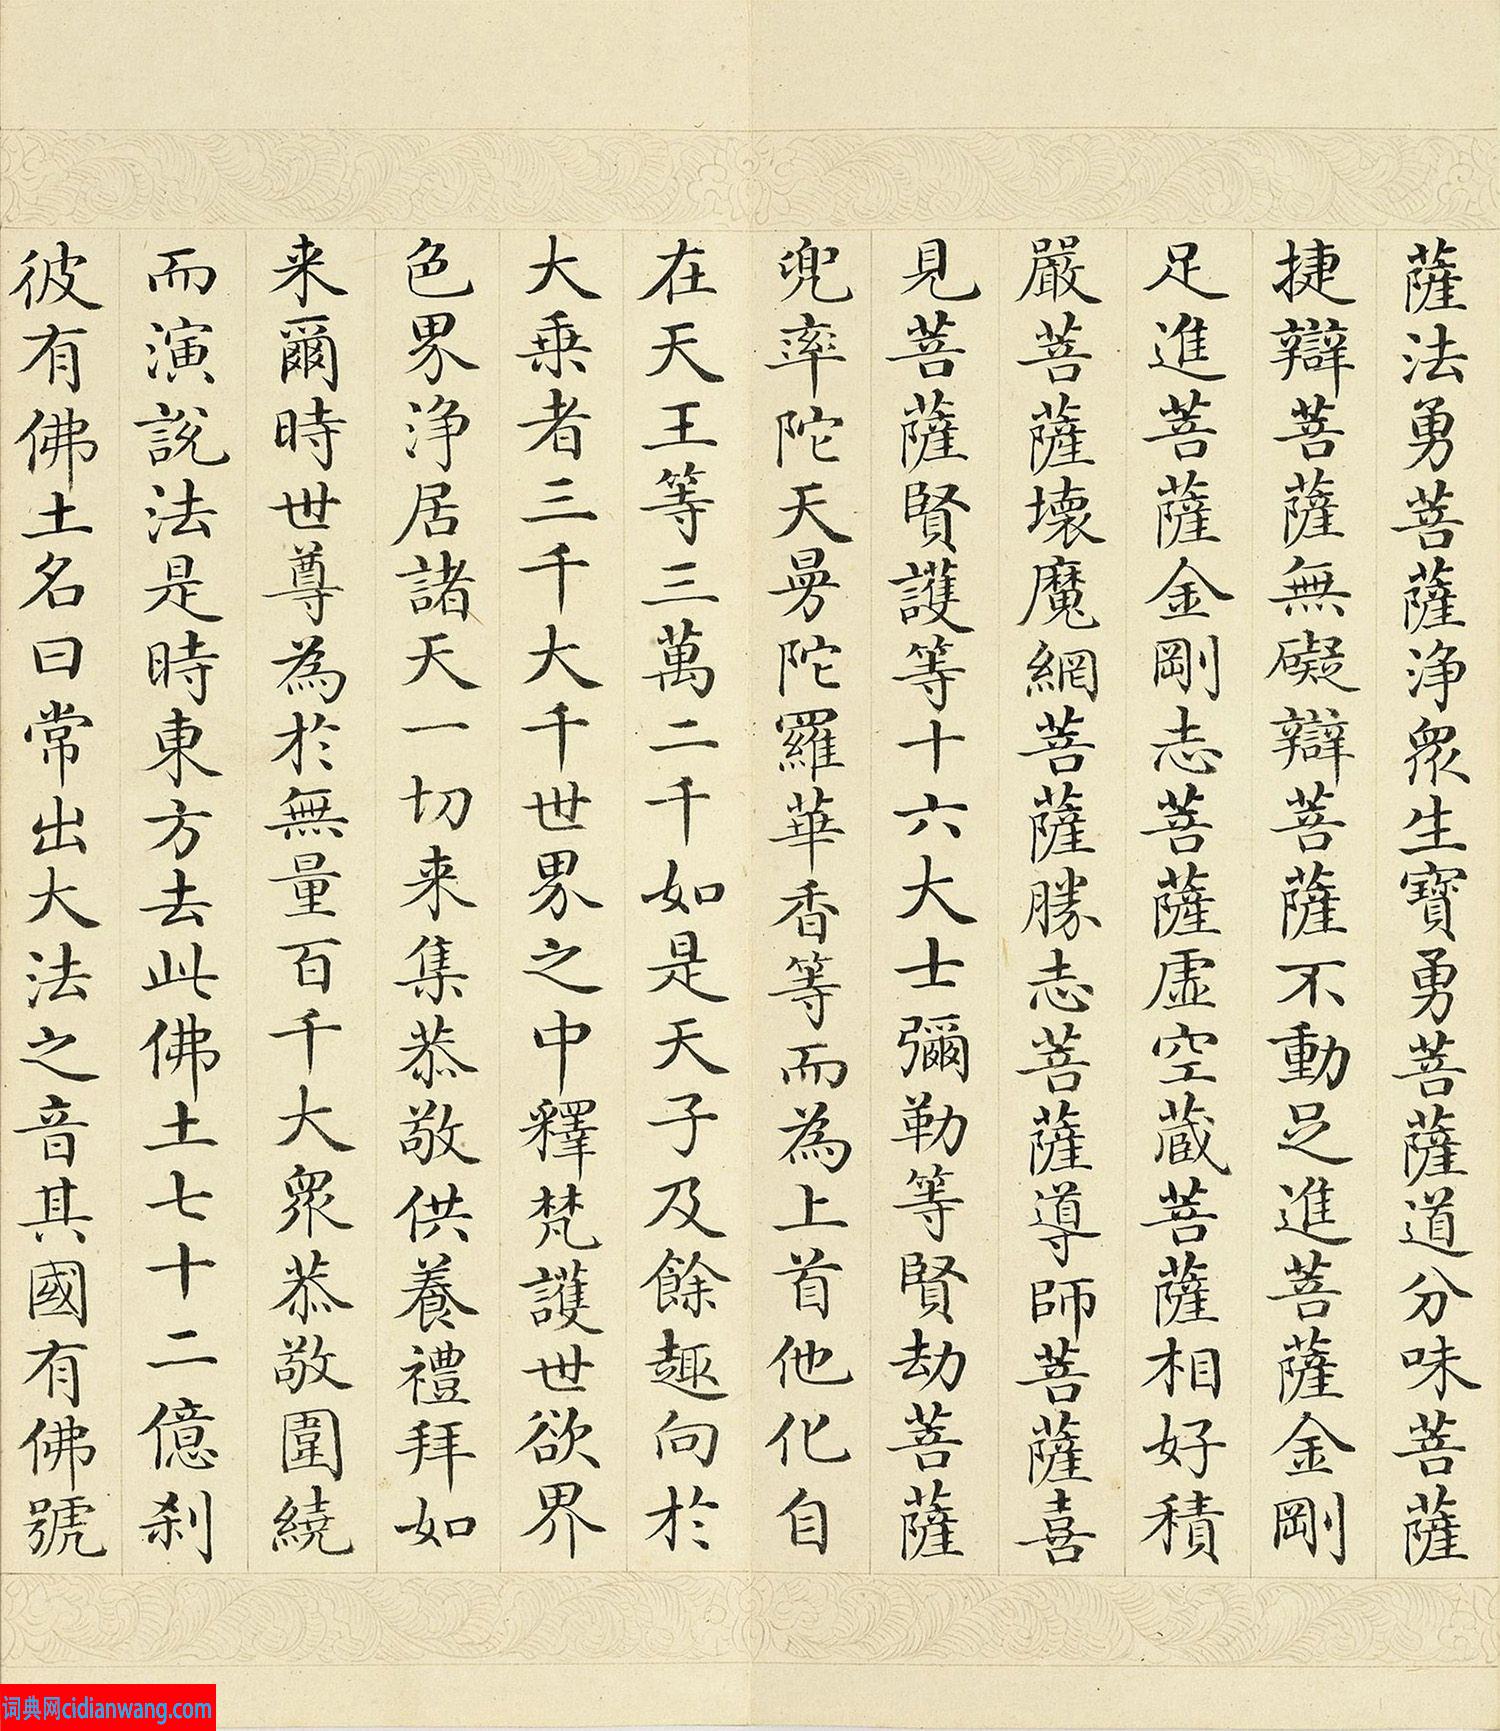 薩法勇菩薩浄衆生寶勇菩薩道分味菩薩
捷辯菩薩無礙辯菩薩不動足進菩薩金剛
足進菩薩金剛志菩薩虚空蔵菩薩相好積
嚴菩薩壊魔網菩薩勝志菩薩導師菩薩喜
見菩薩賢護等十六大士彌勒等賢劫菩薩
兜率陀天曼陀羅華香等而為上首他化自
在天王等三萬二千如是天子及餘趣向於
大乗者三千大千世界之中釋梵護世欲界
色界浄居諸天一切来集恭敬供養禮拜如
来爾時世尊為於無量百千大衆恭敬圍繞
而演說法是時東方去此佛土七十二億刹
彼有佛土名曰常出大法之音其國有佛號
词典网cidianwang.com